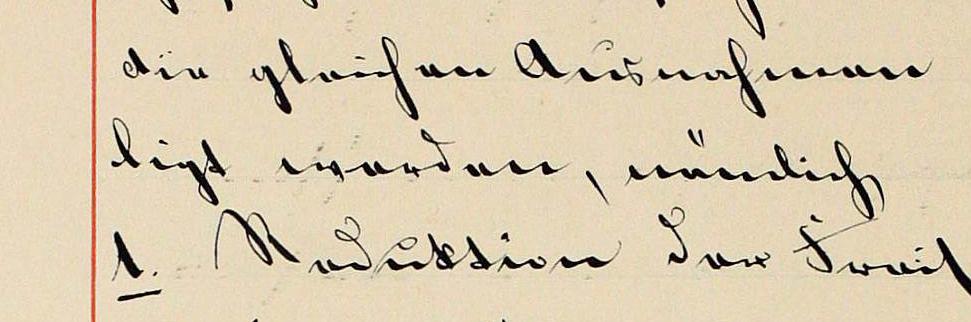 die gleichen Ausnahmen
ligt werden, nämlich
1. Reduktion der